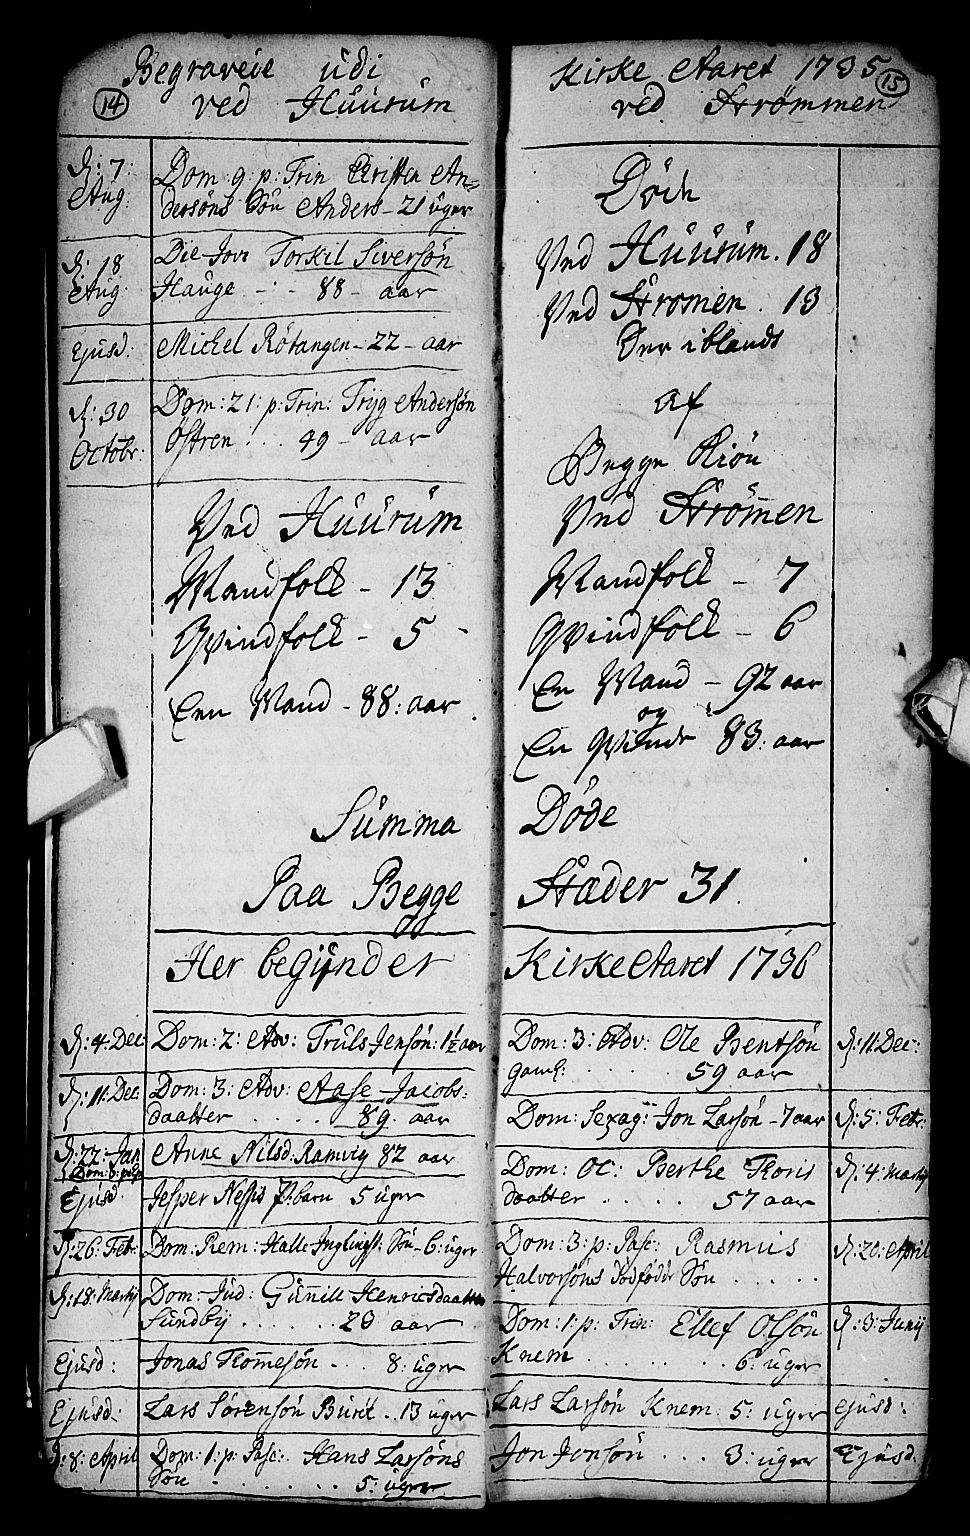 Begraveie udi
14 ved Huurum
d: 7: Aug: Dom: 9: p: Trin Christen An=
dersøns Søn Anders - 21 uger
d: 18 Aug: Die Jovi Torkil Siversøn
Hauge - - 88 - aar
Ejusd: Michel Røtangen - 22 - aar
d: 30 Octobr: Dom: 21: p: Trin: Tryg Andersøn
Østren . . . 49 - aar
Ved Huurum
Mandfolk - 13
Qvindfolk - 5 -
Een Mand - 88: aar
Summa
Paa Begge
Her begynder
d: 4: Dec: Dom: 2: Adv: Truls Jensøn: 1½ aar
d: 11: Dec: Dom: 3: Adv: Aase Jacobs:
daatter . . . . 89. aar
d: 22 Jan Anne Nilsd: Ramvig 82 aar
Ejusd: Jesper Nessis P: barn 5 uger
d: 26: Febr: Dom: Rem: Halle Ingebregts: Søn - 6: uger
d: 18: Martij Dom: Jud: Gunnild Henricsdaatter
Sundby . . . . . . 23 aar
Ejusd: Jonas Tommesøn . . . 8: uger
Ejusd: Lars Sørensøn Burit . . 13 uger
d: 8: April Dom: 1: p: Pasc: Hans Larsøns
Søn . . . . . . . 5: uger
Kirke Aaret 1735 15
ved Strømmen
Døde
Ved Huurum. 18
Ved Strømen. 13
Der iblandt
af
Begge Kiøn
Ved Strømmen
Mandfolk - 7
Qvindfolk - 6
En Mand - 92 aar
og
En Qvinde 83: aar
Døde
Stæder 31.
Kirke Aaret 1736
Dom: 3: Adv: Ole Bentsøn d: 11: Dec:
gaml: . . . . . 59 aar
Dom: Sexag: Jon Larsøn - 7 aar d: 5: Febr:
Dom: Oc: Berthe Toris d: 4: Martij
daatter . . . . . 57 aar
Dom: 3: p: Pasc: Rasmus d: 20: April
Halvorsøns dødfødde Søn . . . . .
Dom: 1: p: Trin: Ellef Olsøn d: 3: Junij
Knem . . . . . . . 6: uger
Lars Larsøn Knem 5: uger Ejusd:
Jon Jonsøn . . . 3: uger Ejusd: